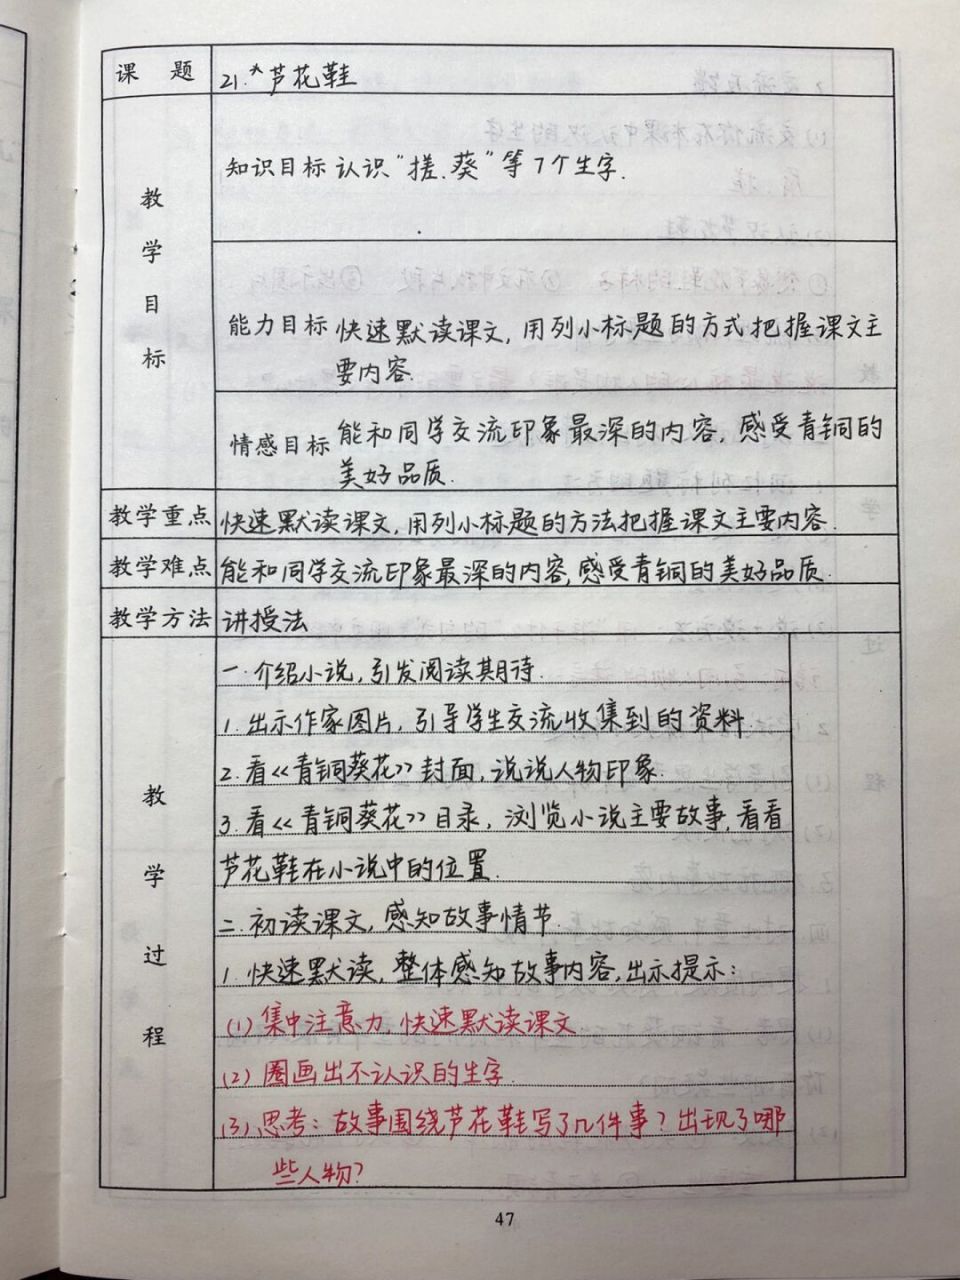 课 题 21.*芦花鞋
教学目标
知识目标 认识“搓、葵”等7个生字.
能力目标 快速默读课文,用列小标题的方式把握课文主
要内容.
情感目标 能和同学交流印象最深的内容,感受青铜的
美好品质.
教学重点 快速默读课文,用列小标题的方法把握课文主要内容.
教学难点 能和同学交流印象最深的内容,感受青铜的美好品质.
教学方法 讲授法
教学过程
一.介绍小说,引发阅读期待.
1.出示作家图片,引导学生交流收集到的资料.
2.看《青铜葵花》封面,说说人物印象.
3.看《青铜葵花》目录,浏览小说主要故事,看看
芦花鞋在小说中的位置.
二.初读课文,感知故事情节.
1.快速默读,整体感知故事内容,出示提示:
(1)集中注意力,快速默读课文
(2)圈画出不认识的生字.
(3)思考:故事围绕芦花鞋写了几件事?出现了哪
些人物?
47